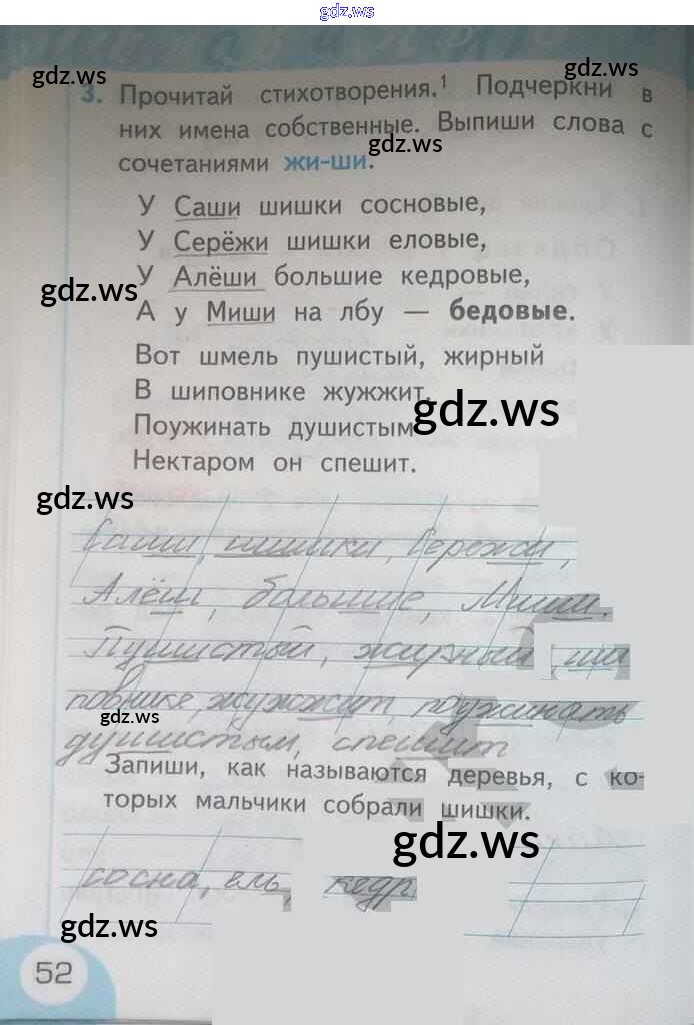 gdz.ws
gdz.ws
gdz.ws
3. Прочитай стихотворения.¹ Подчеркни в
них имена собственные. Выпиши слова с
gdz.ws
сочетаниями жи-ши.
У Саши шишки сосновые,
У Серёжи шишки еловые,
У Алёши большие кедровые,
gdz.ws
А у Миши на лбу — бедовые.
Вот шмель пушистый, жирный
В шиповнике жужжит.
gdz.ws
Поужинать душистым
Нектаром он спешит.
gdz.ws
Саши, шишки, Сережи,
Алёши, большие, Миши.
Пушистый, жирный, ши
повнике, жужжит, поужинать
gdz.ws
душистым, спешит
Запиши, как называются деревья, с ко-
торых мальчики собрали шишки.
gdz.ws
сосна, ель, кедр
gdz.ws
52
gdz.ws